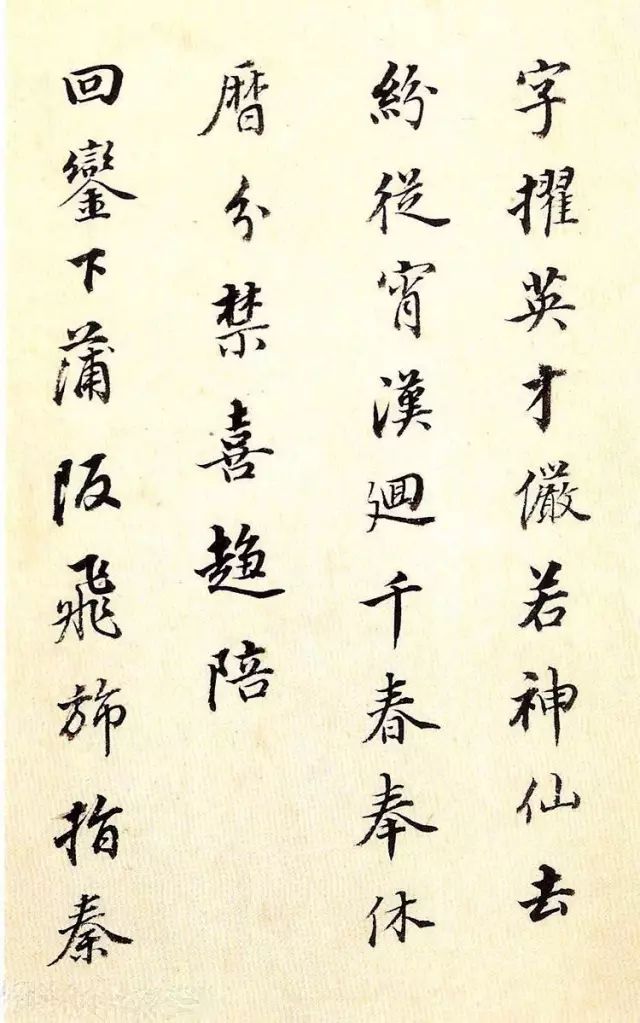 字擢英才儼若神仙去
紛從宵漢廻千春奉休
曆分禁喜趨陪
回鑾下蒲阪飛旆指秦